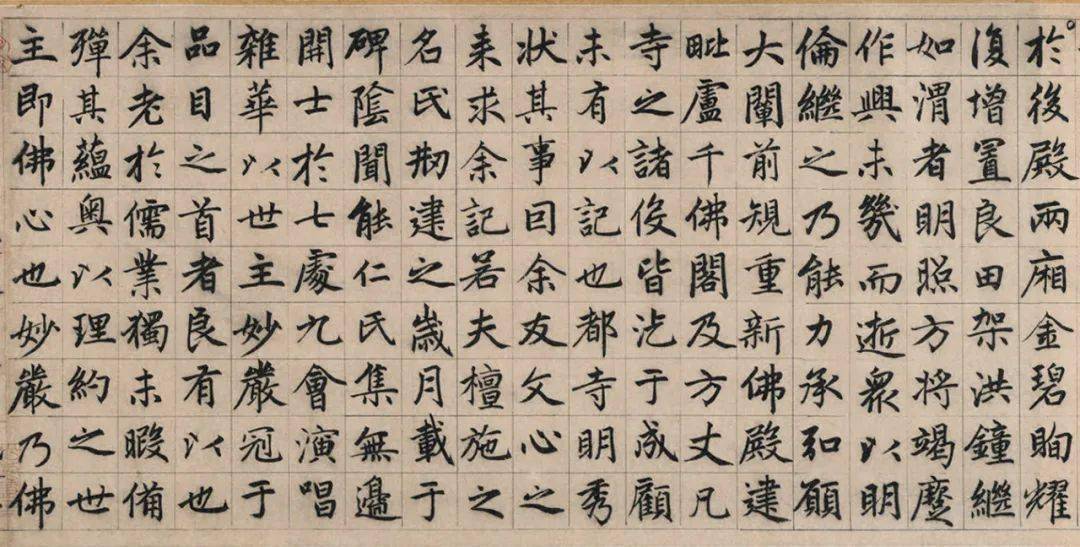 於後殿兩廂金碧眴耀
復增置良田架洪鐘繼
如渭者明照方將竭麼
作興未幾而逝衆以明
倫繼之乃能力承弘願
大闡前規重新佛殿建
毗盧千佛閣及方丈凡
寺之諸役皆汔于成顧
未有以記也都寺明秀
狀其事囘余友文心之
来求余記若夫檀施之
名氏刱建之歲月載于
碑陰聞能仁氏集無邊
開士於七處九會演唱
雜華以世主妙嚴冠于
品目之首者良有以也
余老於儒業獨未暇備
殫其蘊奧以理約之世
主即佛心也妙嚴乃佛